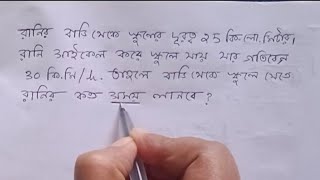 রানির বাড়ি থেকে স্কুলের দূরত্ব 25 কি.লো.মিটার।
রানি সাইকেল করে স্কুলে যায় যার গতিবেগ
30 কি.মি/h. তাহলে বাড়ি থেকে স্কুলে যেতে
রানির কত সময় লাগবে?